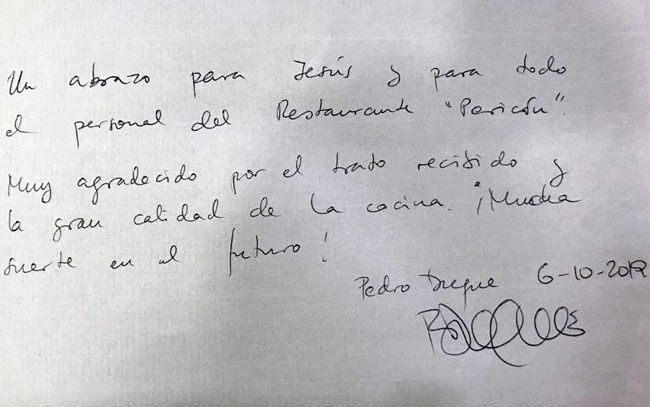 Un abrazo para Jesús y para todo
el personal del Restaurante "Pericón".
Muy agradecido por el trato recibido y
la gran calidad de la cocina. ¡Mucha
suerte en el futuro!
Pedro Duque 6-10-2019